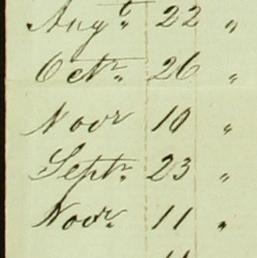 Augt. 22 "
Octr. 26 "
Novr 10 "
Septr. 23 "
Novr. 11 "